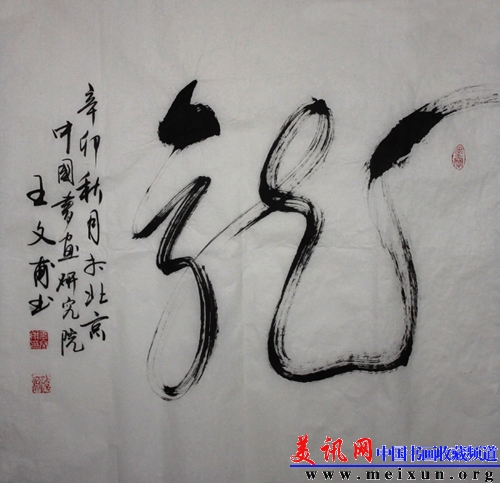 龍
辛卯秋月于北京
中國書画研究院
王文甫书
美讯网 中国书画收藏频道
www.meixun.org